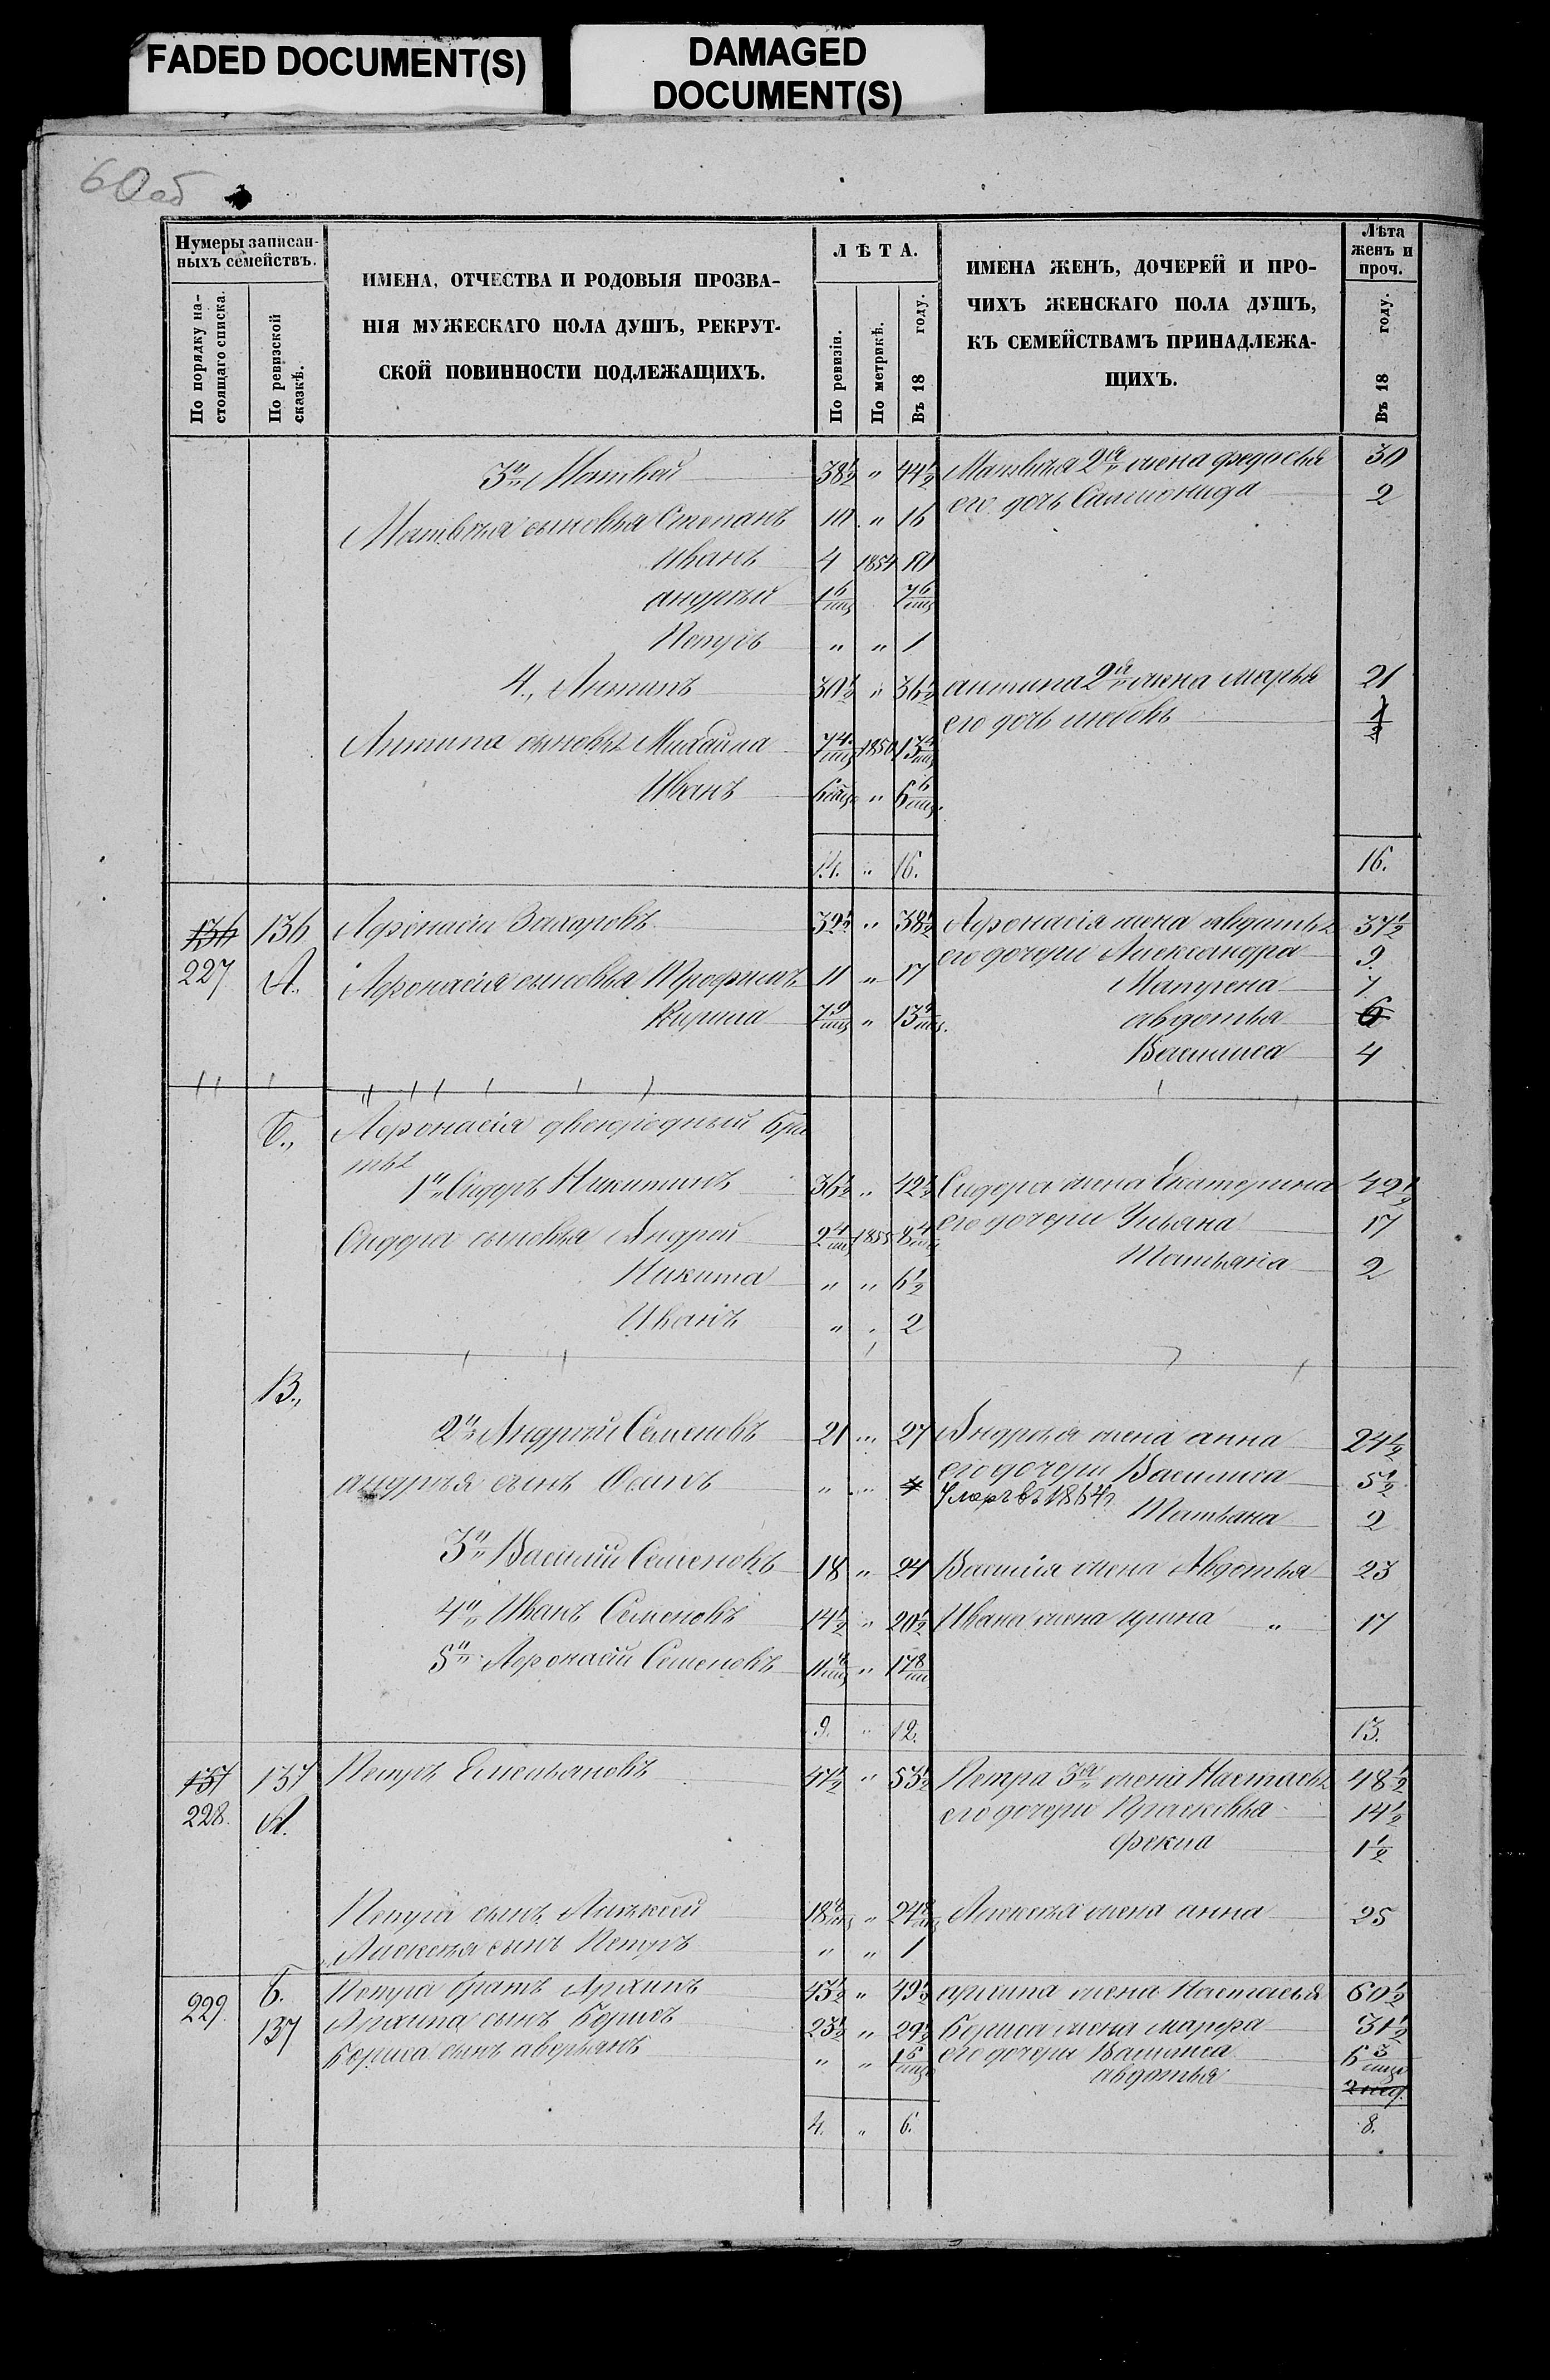 FADED DOCUMENT(S)
DAMAGED
DOCUMENT(S)
60об
Нумеры записан-
ныхъ семействъ.
По порядку на-
стоящаго списка.
По ревизской
сказкѣ.
ИМЕНА, ОТЧЕСТВА И РОДОВЫЯ ПРОЗВА-
НІЯ МУЖЕСКАГО ПОЛА ДУШЪ, РЕКРУТ-
СКОЙ ПОВИННОСТИ ПОДЛЕЖАЩИХЪ.
ЛѢТА.
По ревизіи.
По метрикѣ.
Въ 18 году.
ИМЕНА ЖЕНЪ, ДОЧЕРЕЙ И ПРО-
ЧИХЪ ЖЕНСКАГО ПОЛА ДУШЪ,
КЪ СЕМЕЙСТВАМЪ ПРИНАДЛЕЖА-
ЩИХЪ.
Лѣта
женъ и
проч.
Въ 18 году.
3й Матвей 38½ " 44½ Матвѣя 2я жена федосья 30
его дочь Саломонида 2
Матвѣя сыновья Степанъ 10 " 16
Иванъ 4 1854 10
андрей 1 6/мц 7 6/мц
Петръ " " 1
4., Антипъ 30½ " 36½ антипа 2я жена марья 21
его дочь любовь ½
Антипа сыновья Михайла 7 4/мц 1850 13 4/мц
Иванъ 6 мцъ " 6 6/мц
14. " 16. 16.
136 136 Афонасій Захаровъ 32½ " 38½ Афонасія жена авдотья 37½
227 А. его дочери Александра 9.
Афонасія сыновья Трофимъ 11 " 17 Матрена 7
Кирила 7 9/мц " 13 9/мц. авдотья 6
Василиса 4
Б., Афонасія двоюродный бра
тья
1й Сидоръ Никитинъ 36½ " 42½ Сидора жена Екатерина 42½
его дочери Ульяна 17
Сидора сыновья Андрей 2 4/мц 1855 8 4/мц Татьяна 2
Никита " " 6½
Иванъ " " 2
В.,
2й Андрей Семеновъ 21 " 27 Андрея жена анна 24½
его дочери Василиса 5½
андрея сынъ " " 4 Умеръ въ 1864г
Татьяна 2
3й Василій Семеновъ 18 " 24 Василія жена Авдотья 23
4й Иванъ Семеновъ 14½ " 20½ Ивана жена ирина " 17
5й Афонасій Семеновъ 11 8/мц " 17 8/мц
9. " 12. 13.
137 137 Петръ Емельяновъ 47½ " 53½ Петра 3я жена Настасья 48½
228. А. его дочери Прасковья 14½
фекла 1½
Петра сынъ Алексей 18 8/мц " 24 8/мц Алексея жена анна 25
Алексея сынъ Петръ " " 1
229. Б. Петра братъ Архипъ 43½ " 49½ архипа жена Настасья 60½
137 Архипа сынъ Борисъ 23½ " 29½ Бориса жена марфа 31½
Бориса сынъ аверьянъ " " 1 5/мцъ его дочери Василиса 6 3/мцъ
авдотья 2 нед.
4. " 6. 8.